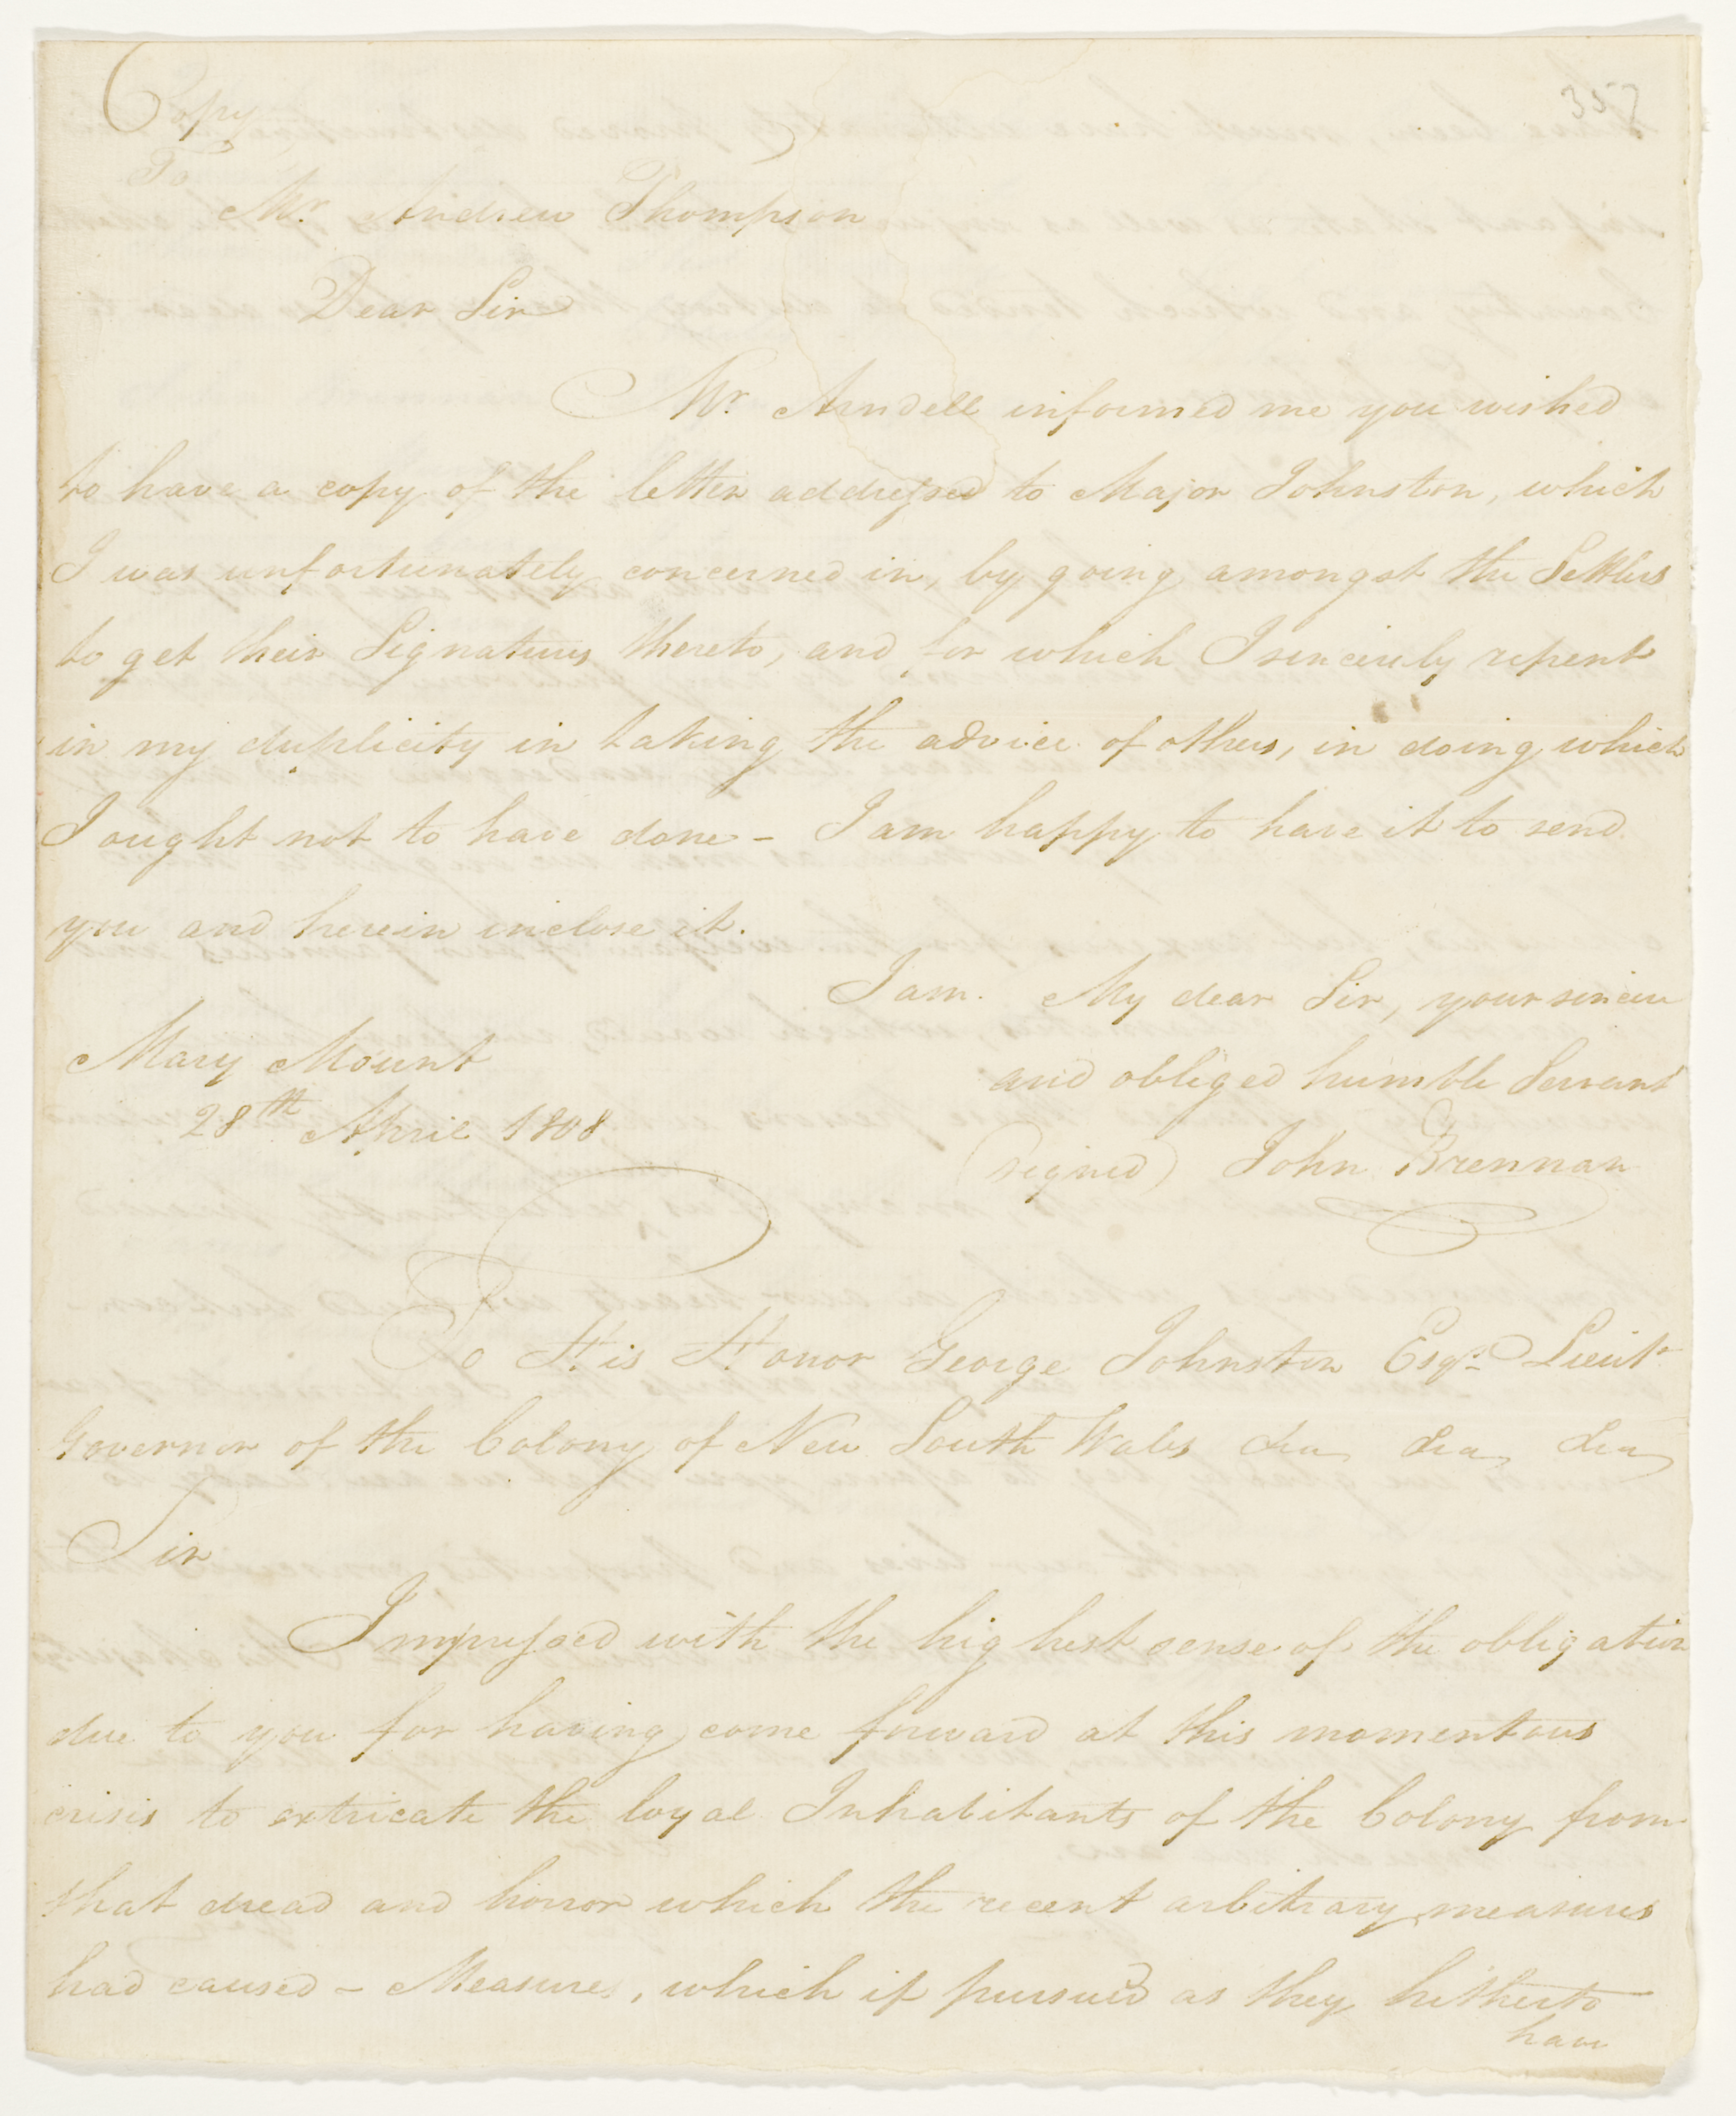 357
Copy
To
Mr. Andrew Thompson
Dear Sir
Mr. Arndell informed me you wished
to have a copy of the letter addressed to Major Johnston, which
I was unfortunately concerned in, by going amongst the Settlers
to get their Signatures thereto, and for which I sincerely repent
in my duplicity in taking the advice of others, in doing which
I ought not to have done - I am happy to have it to send
you and herein inclose it.
I am. My dear Sir, your sincere
and obliged humble Servant
(signed) John Brennan
Mary Mount
28th April 1808
To His Honor George Johnston Esqr. Lieut.
Governor of the Colony of New South Wales &ca &ca &ca
Sir
Impressed with the highest sense of the obligation
due to you for having come forward at this momentous
crisis to extricate the loyal Inhabitants of the Colony from
that dread and horror which the recent arbitrary measures
had caused - Measures, which if pursued as they hitherto
have